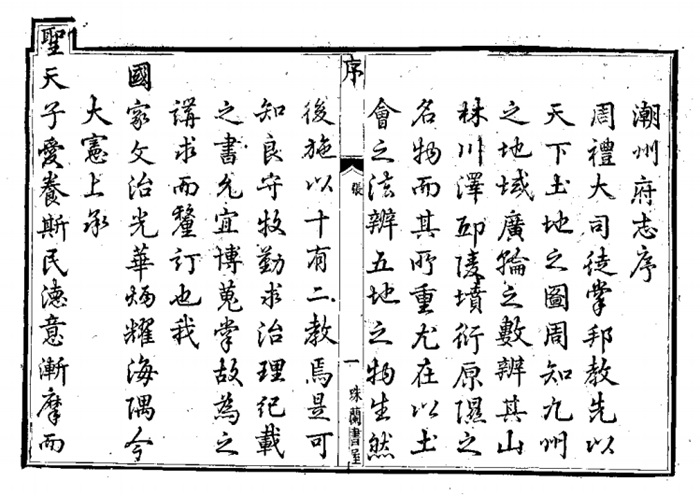 潮州府志序
周禮大司徒掌邦教先以
天下土地之圖周知九州
之地域廣輪之數辨其山
林川澤邱陵墳衍原隰之
名物而其所重尤在以土
會之法辨五地之物生然
序
張
一
珠蘭書屋
後施以十有二教焉是可
知良守牧勤求治理紀載
之書允宜博蒐掌故為之
講求而釐訂也我
國家文治光華炳耀海隅今
大憲上承
聖天子愛養斯民德意漸摩而